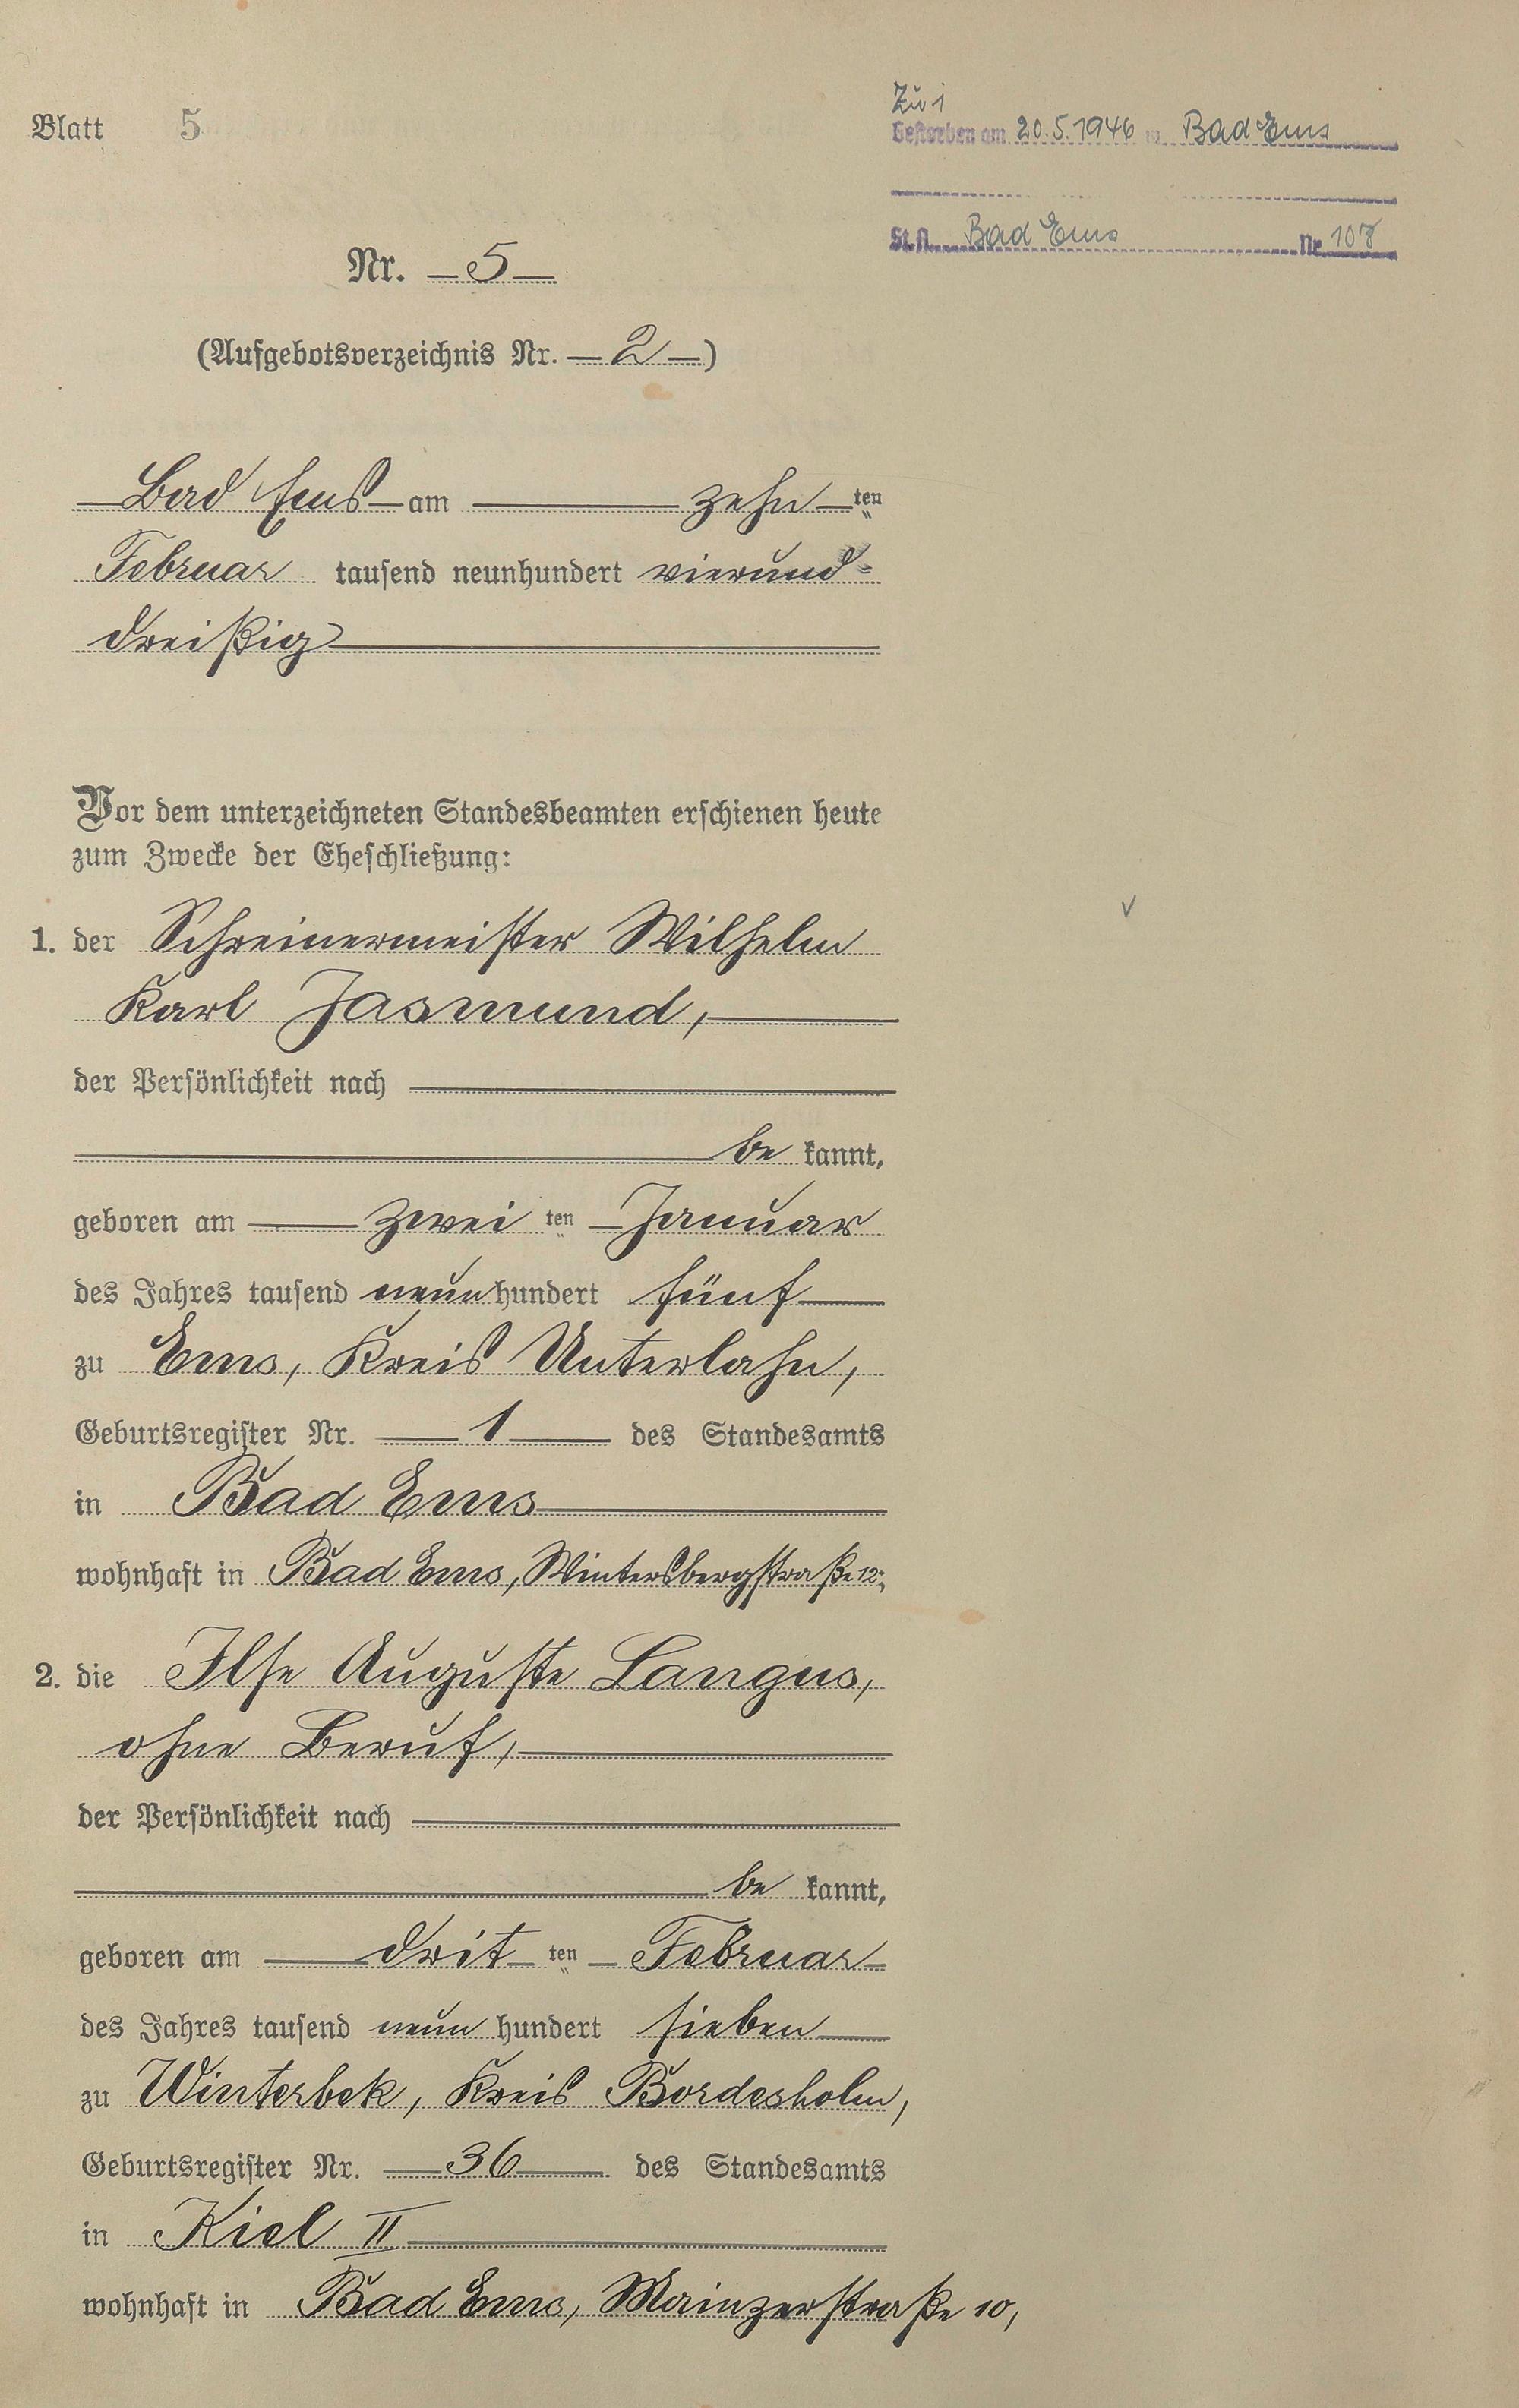 Blatt 5
Zu 1
Gestorben am 20.5.1946 in Bad Ems
St.A. Bad Ems Nr. 107
Nr. 5
(Aufgebotsverzeichnis Nr. 2)
Bad Ems am zehn ten
Februar tausend neunhundert vierund-
dreißig
Vor dem unterzeichneten Standesbeamten erschienen heute
zum Zwecke der Eheschließung:
1. der Schreinermeister Wilhelm
Karl Jasmund,
der Persönlichkeit nach
be kannt,
geboren am zwei ten Januar
des Jahres tausend neun hundert fünf
zu Ems, Kreis Unterlahn,
Geburtsregister Nr. 1 des Standesamts
in Bad Ems
wohnhaft in Bad Ems, Wintersbergstraße 12;
2. die Ilse Auguste Langus,
ohne Beruf,
der Persönlichkeit nach
be kannt,
geboren am drit ten Februar
des Jahres tausend neun hundert sieben
zu Winterbek, Kreis Bordesholm,
Geburtsregister Nr. 36 des Standesamts
in Kiel II
wohnhaft in Bad Ems, Mainzerstraße 10,